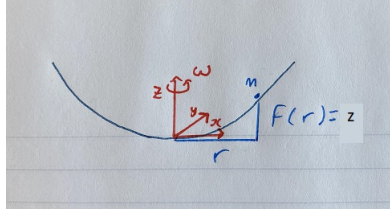 ω
z
m
y
x
F(r) = z
r